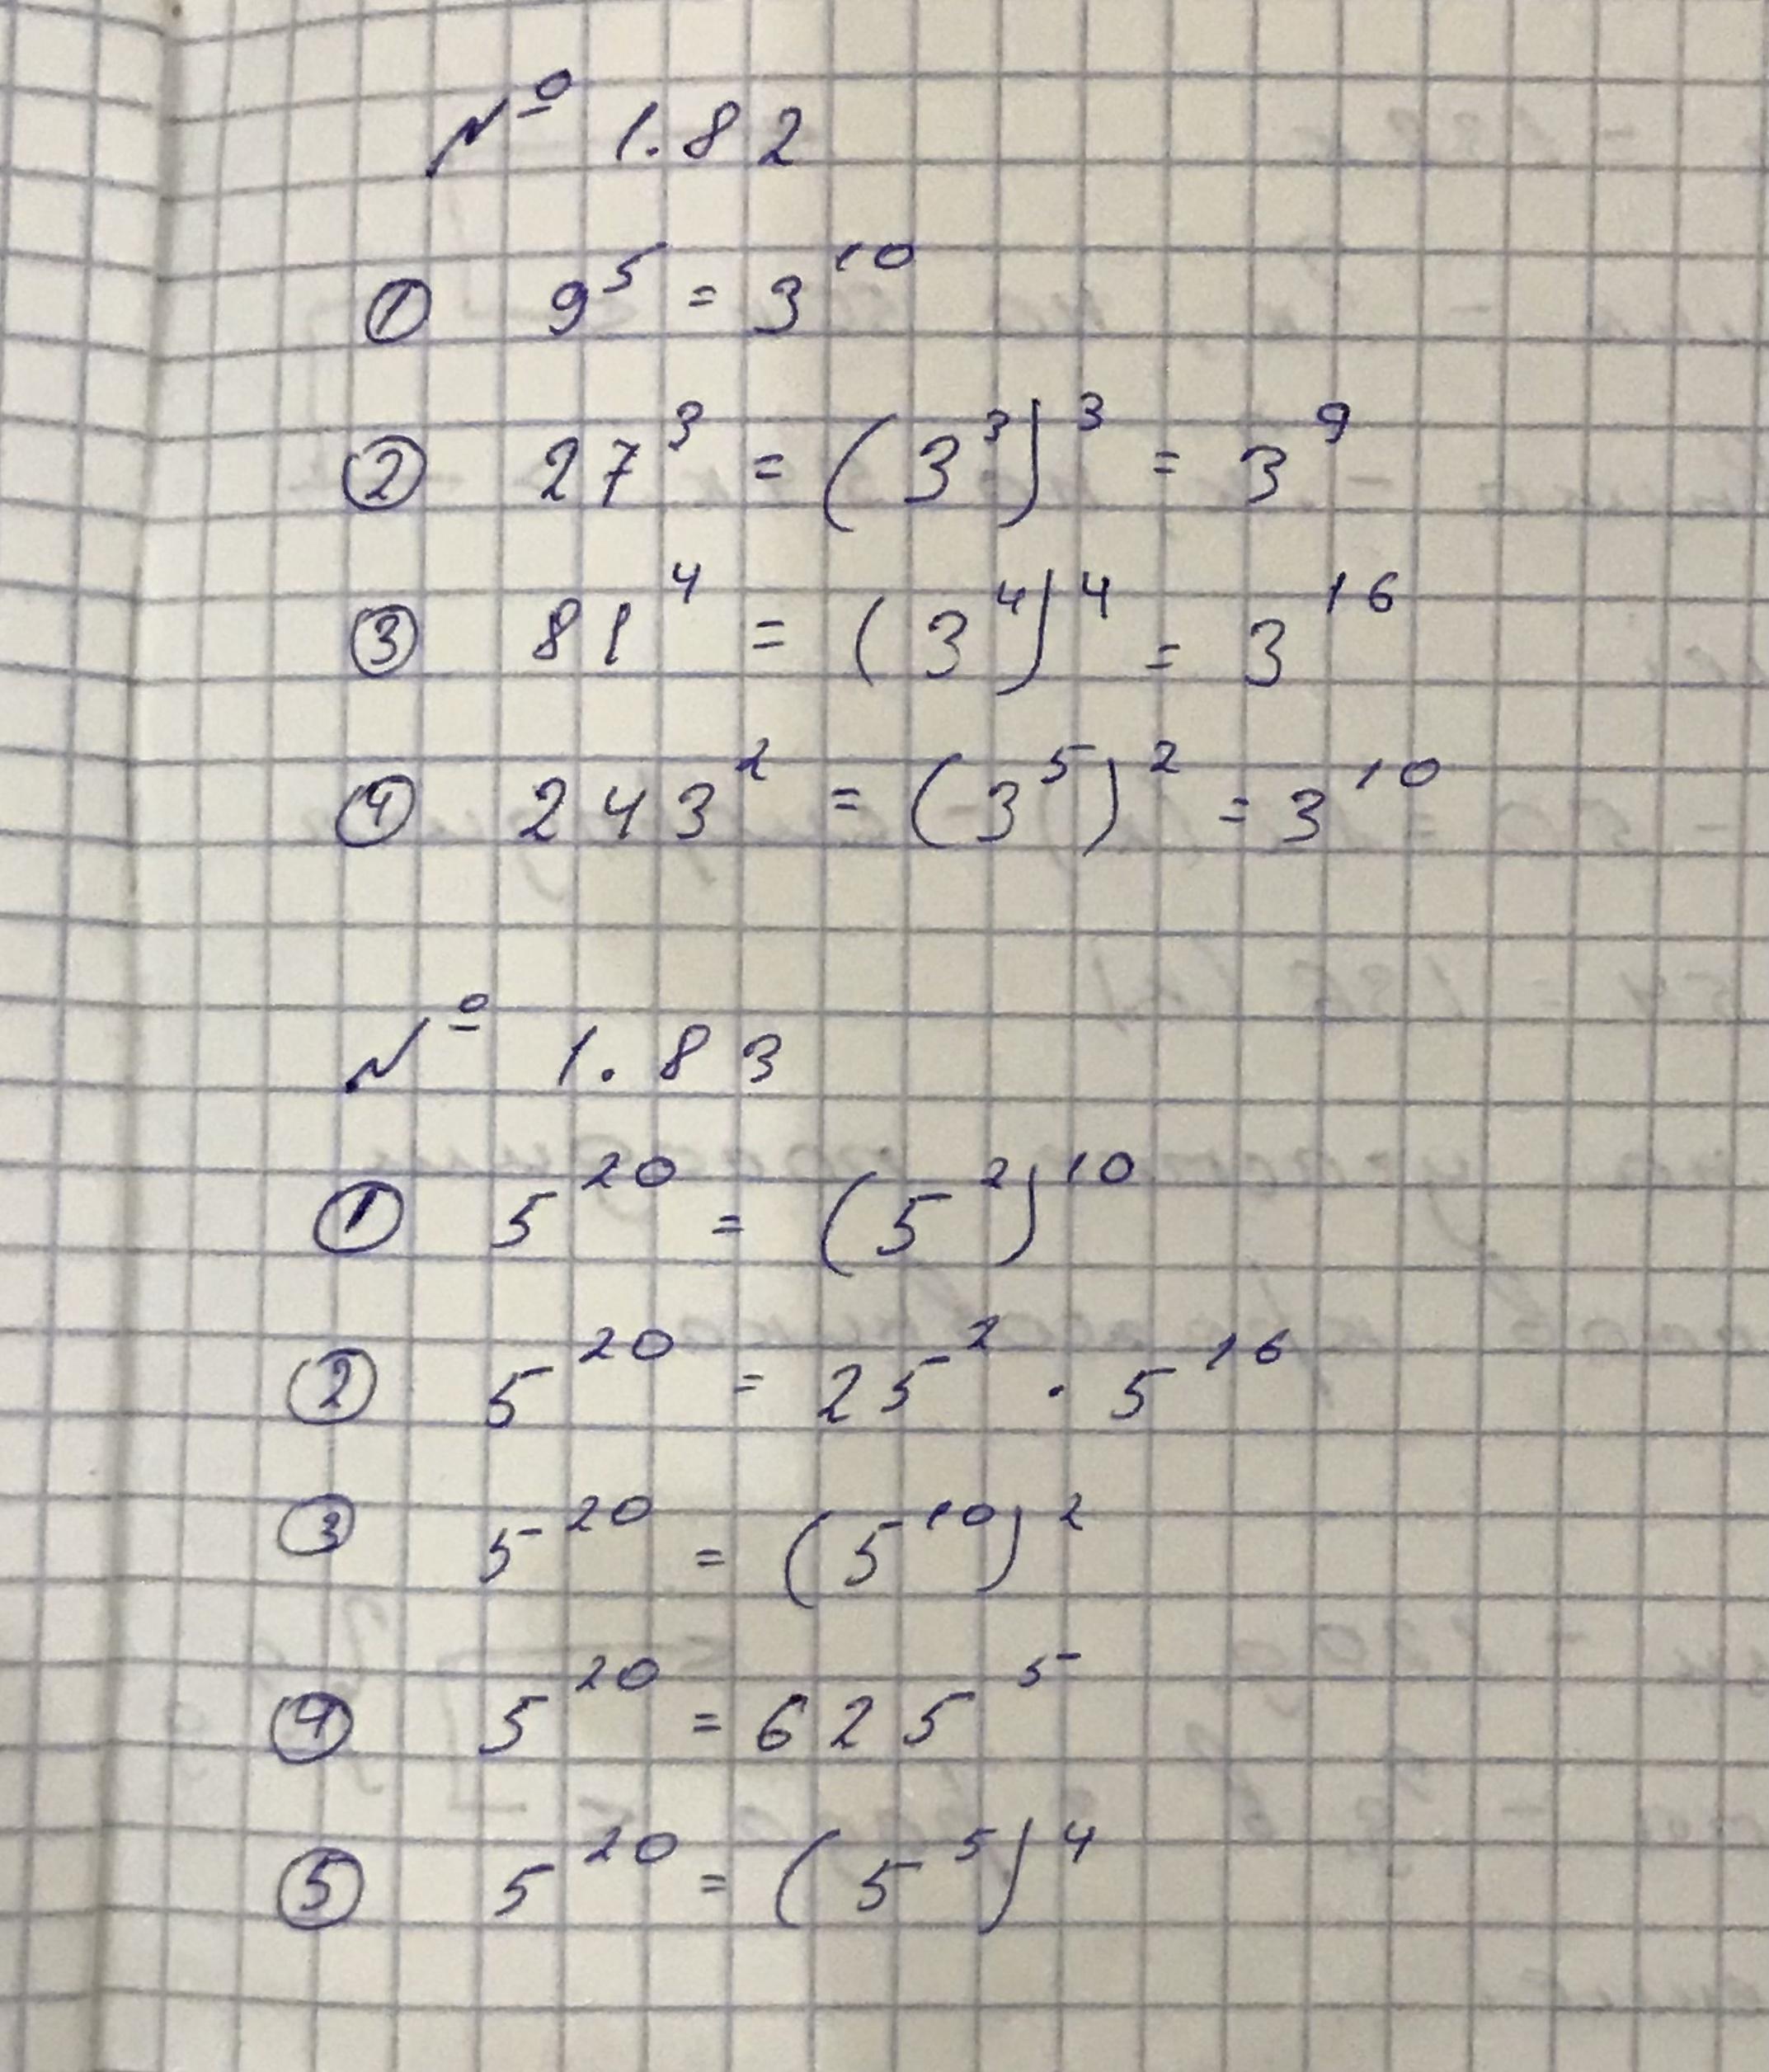 № 1.82
① 9⁵ = 3¹⁰
② 27³ = (3³)³ = 3⁹
③ 81⁴ = (3⁴)⁴ = 3¹⁶
④ 243² = (3⁵)² = 3¹⁰
№ 1.83
① 5²⁰ = (5²)¹⁰
② 5²⁰ = 25² · 5¹⁶
③ 5²⁰ = (5¹⁰)²
④ 5²⁰ = 625⁵
⑤ 5²⁰ = (5⁵)⁴